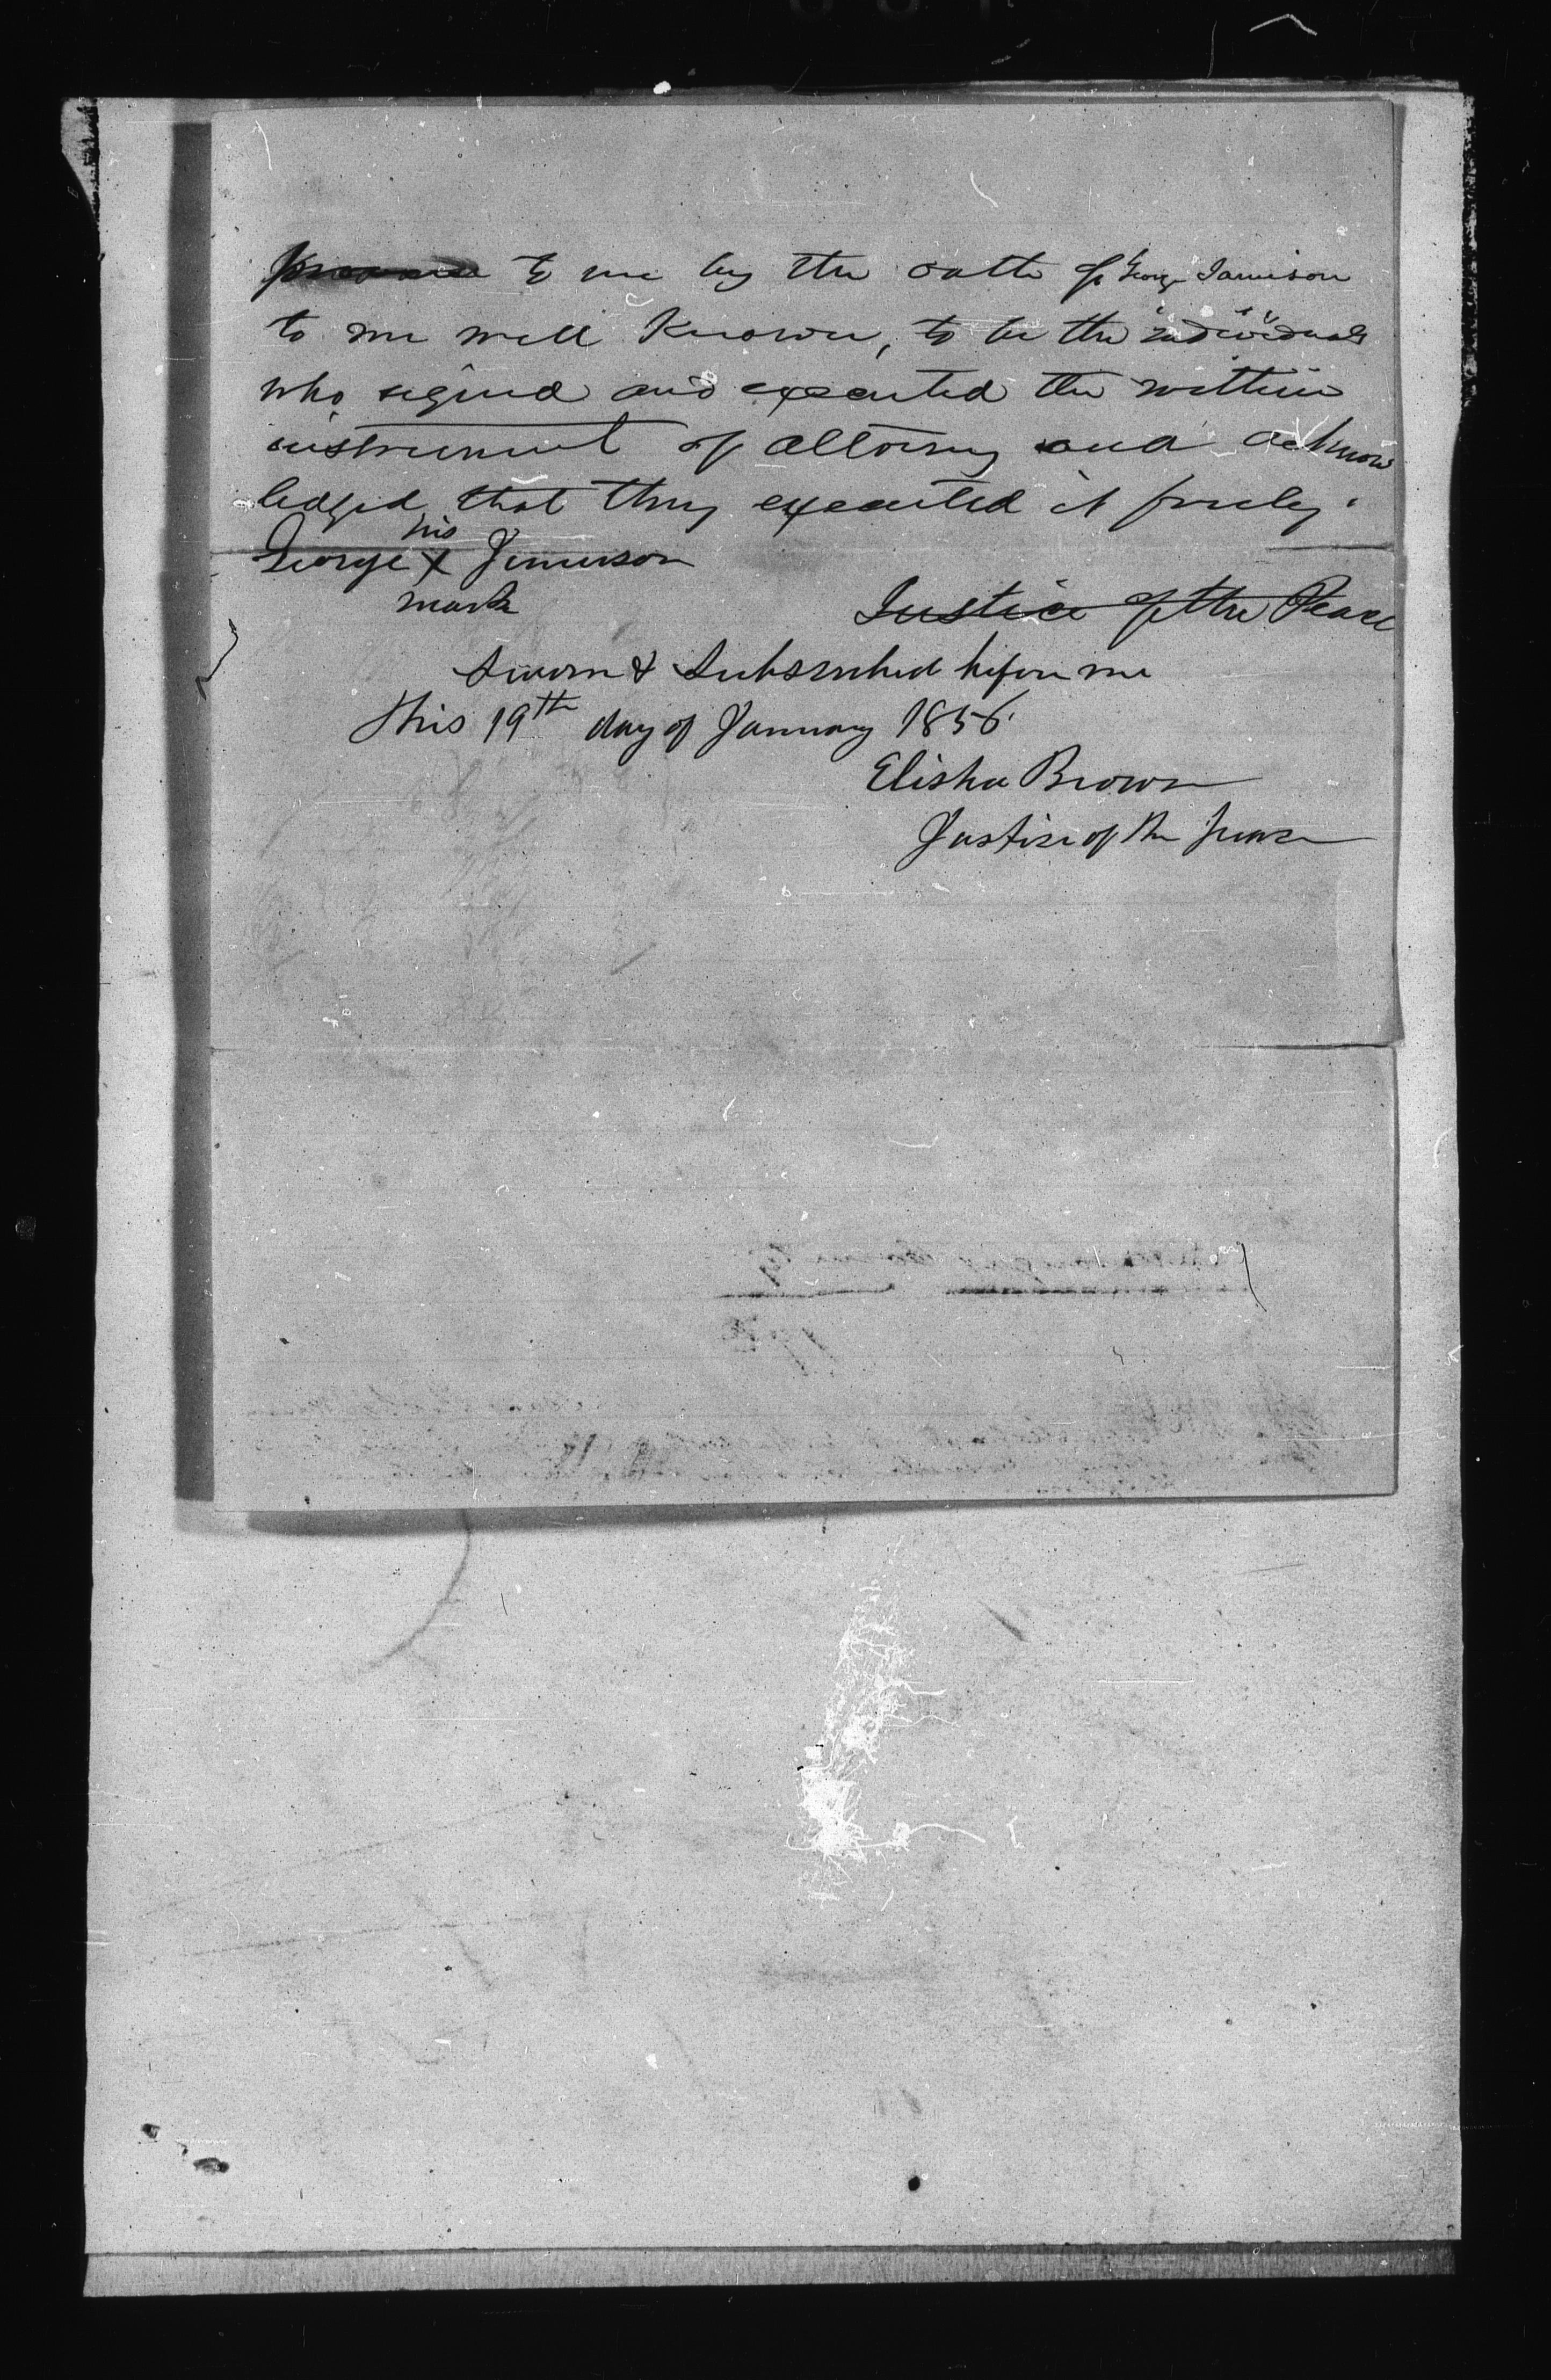 to me by the oath of George Jamison
to me well Known, to be the individuals
who signed and executed the within
instrument of attorny and acknow
ledged that they executed it freely.
his
George X Jimerson
mark
Justice of the Peace
Sworn & Subscribed before me
this 19th day of January 1856.
Elisha Brown
Justice of the Peace